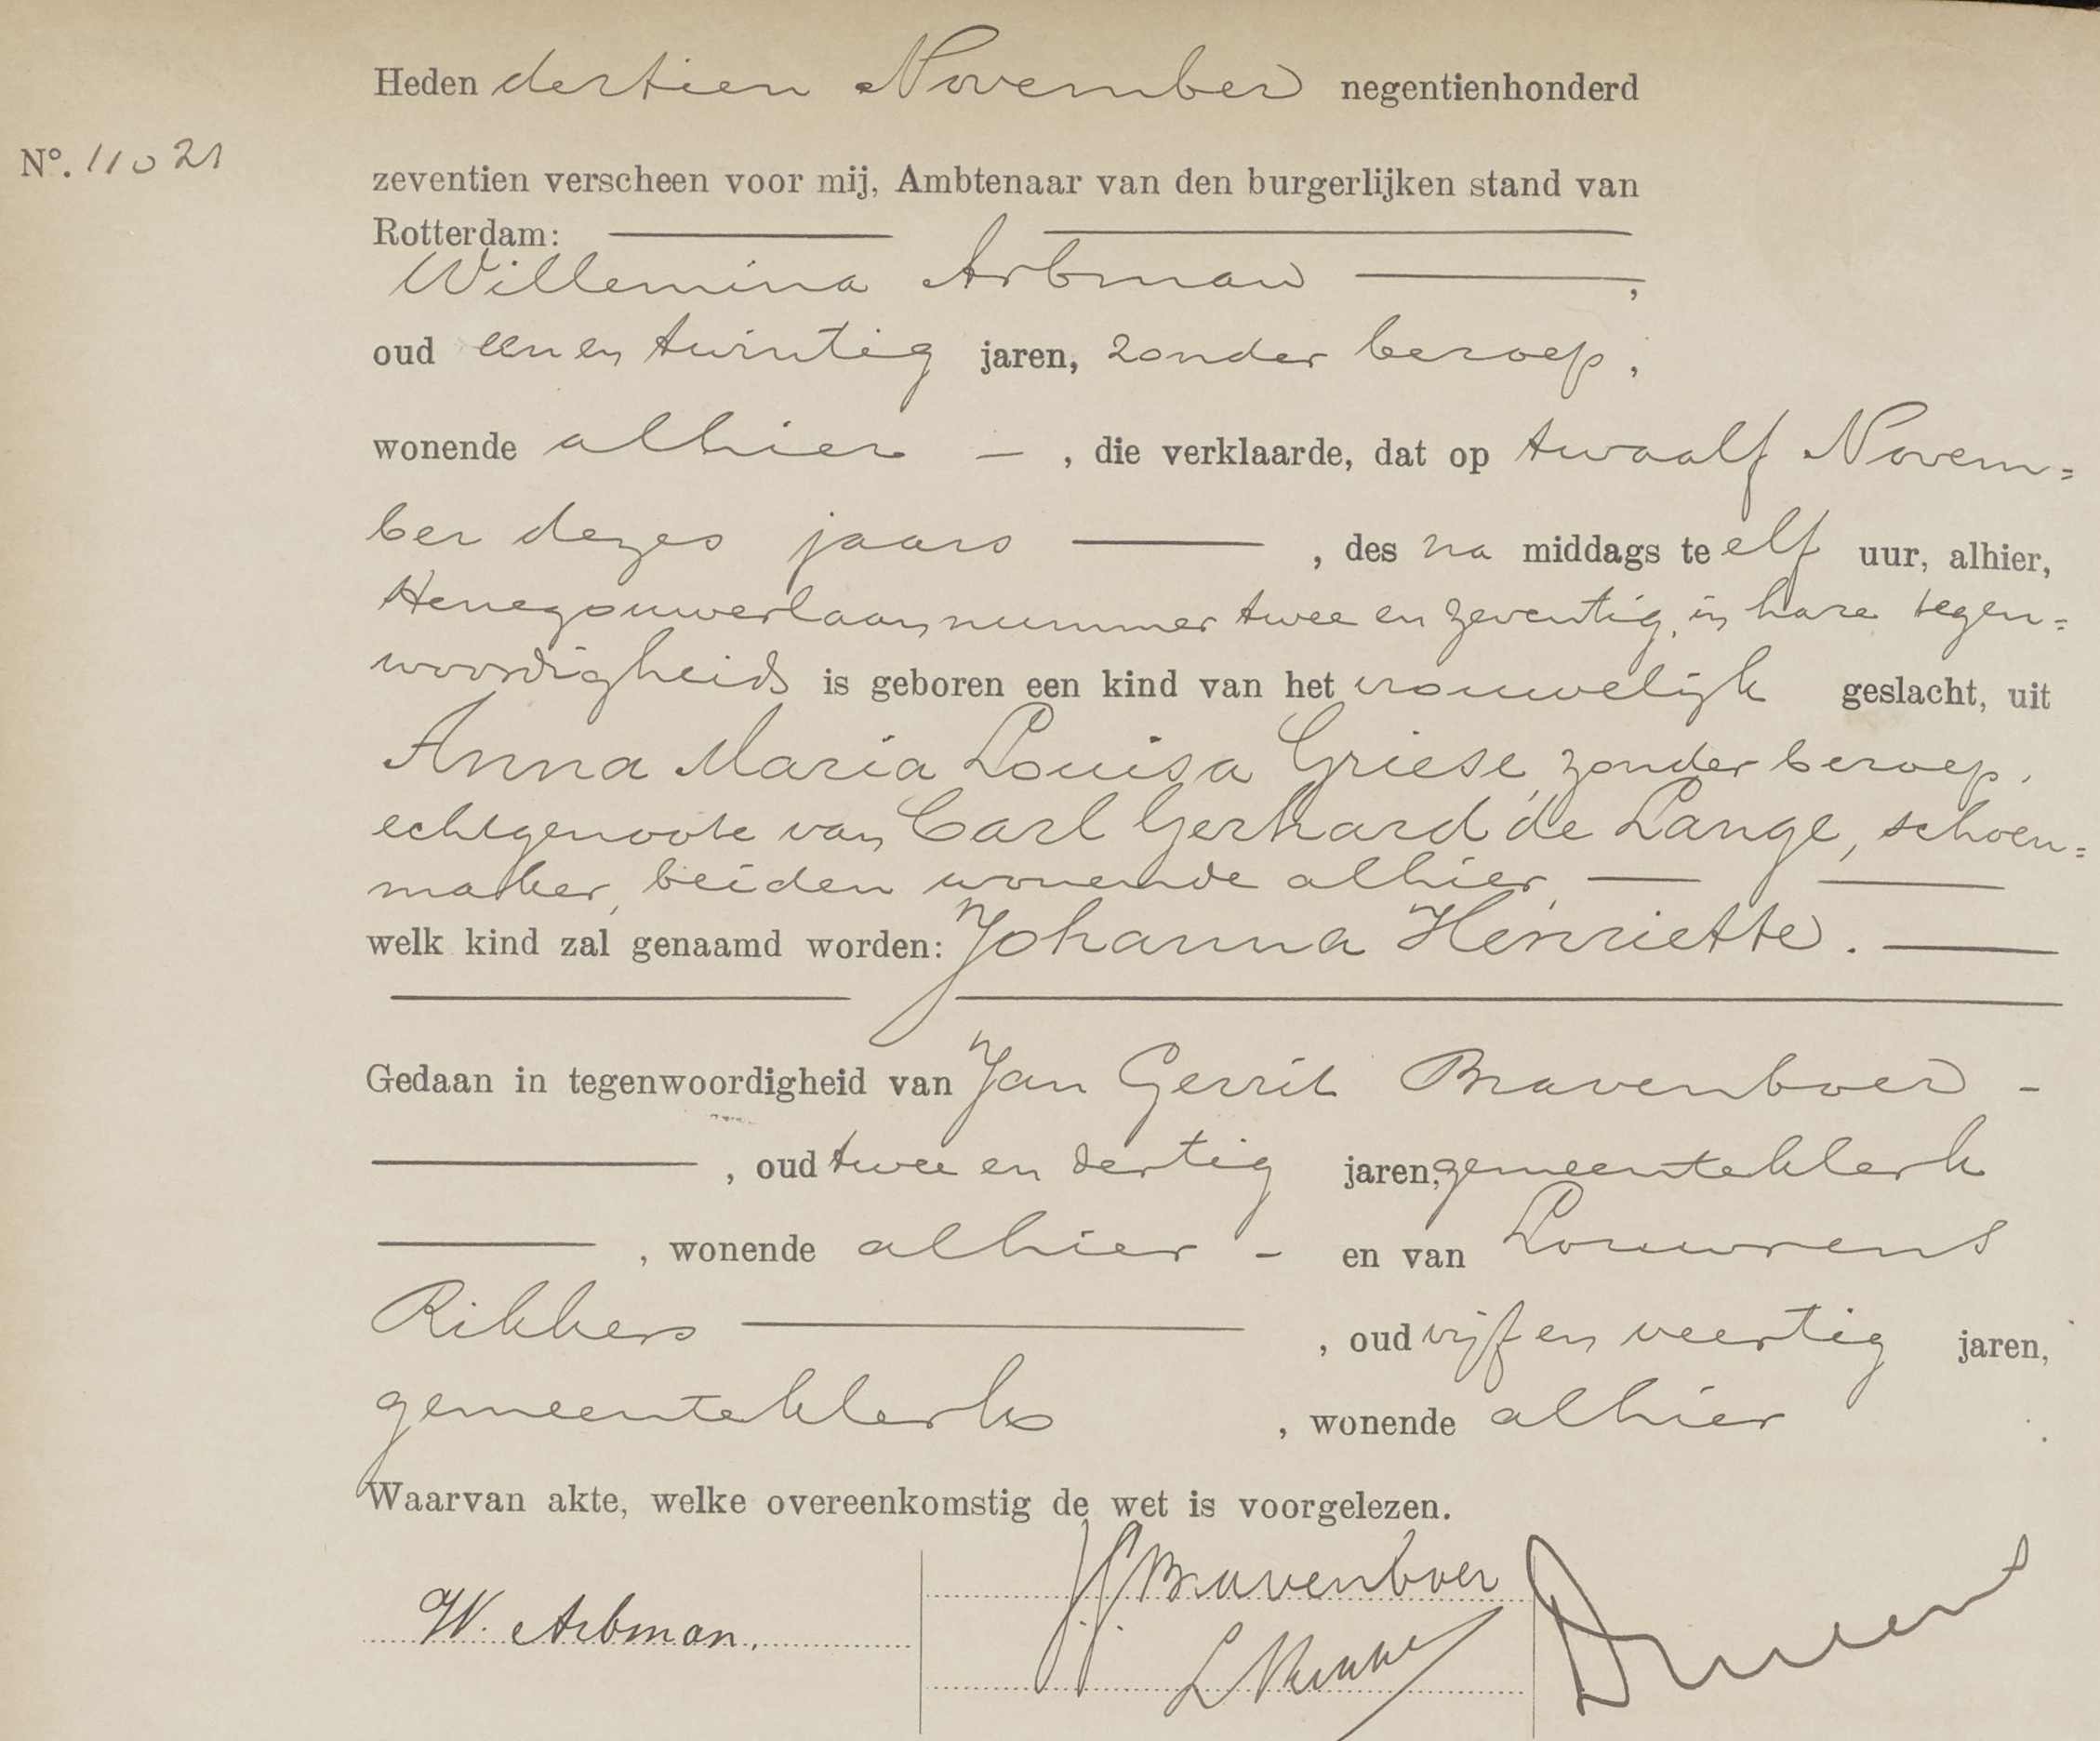 Heden dertien November negentienhonderd
No. 11021
zeventien verscheen voor mij, Ambtenaar van den burgerlijken stand van
Rotterdam:
Willemina Arbman,
oud eenen twintig jaren, zonder beroep,
wonende alhier - , die verklaarde, dat op twaalf Novem=
ber dezes jaars , des na middags te elf uur, alhier,
Henegouwerlaan nummer twee en zeventig, in hare tegen=
woordigheid is geboren een kind van het vrouwelijk geslacht, uit
Anna Maria Louisa Griese, zonder beroep,
echtgenoote van Carl Gerhard de Lange, schoen=
maker, beiden wonende alhier,
welk kind zal genaamd worden: Johanna Henriette.
Gedaan in tegenwoordigheid van Jan Gerrit Bravenboer -
, oud twee en dertig jaren, gemeenteklerk
, wonende alhier - en van Louwrens
Rikkers , oud vijf en veertig jaren,
gemeenteklerk , wonende alhier
Waarvan akte, welke overeenkomstig de wet is voorgelezen.
W. Arbman.
JG Bravenboer
L Rikkers